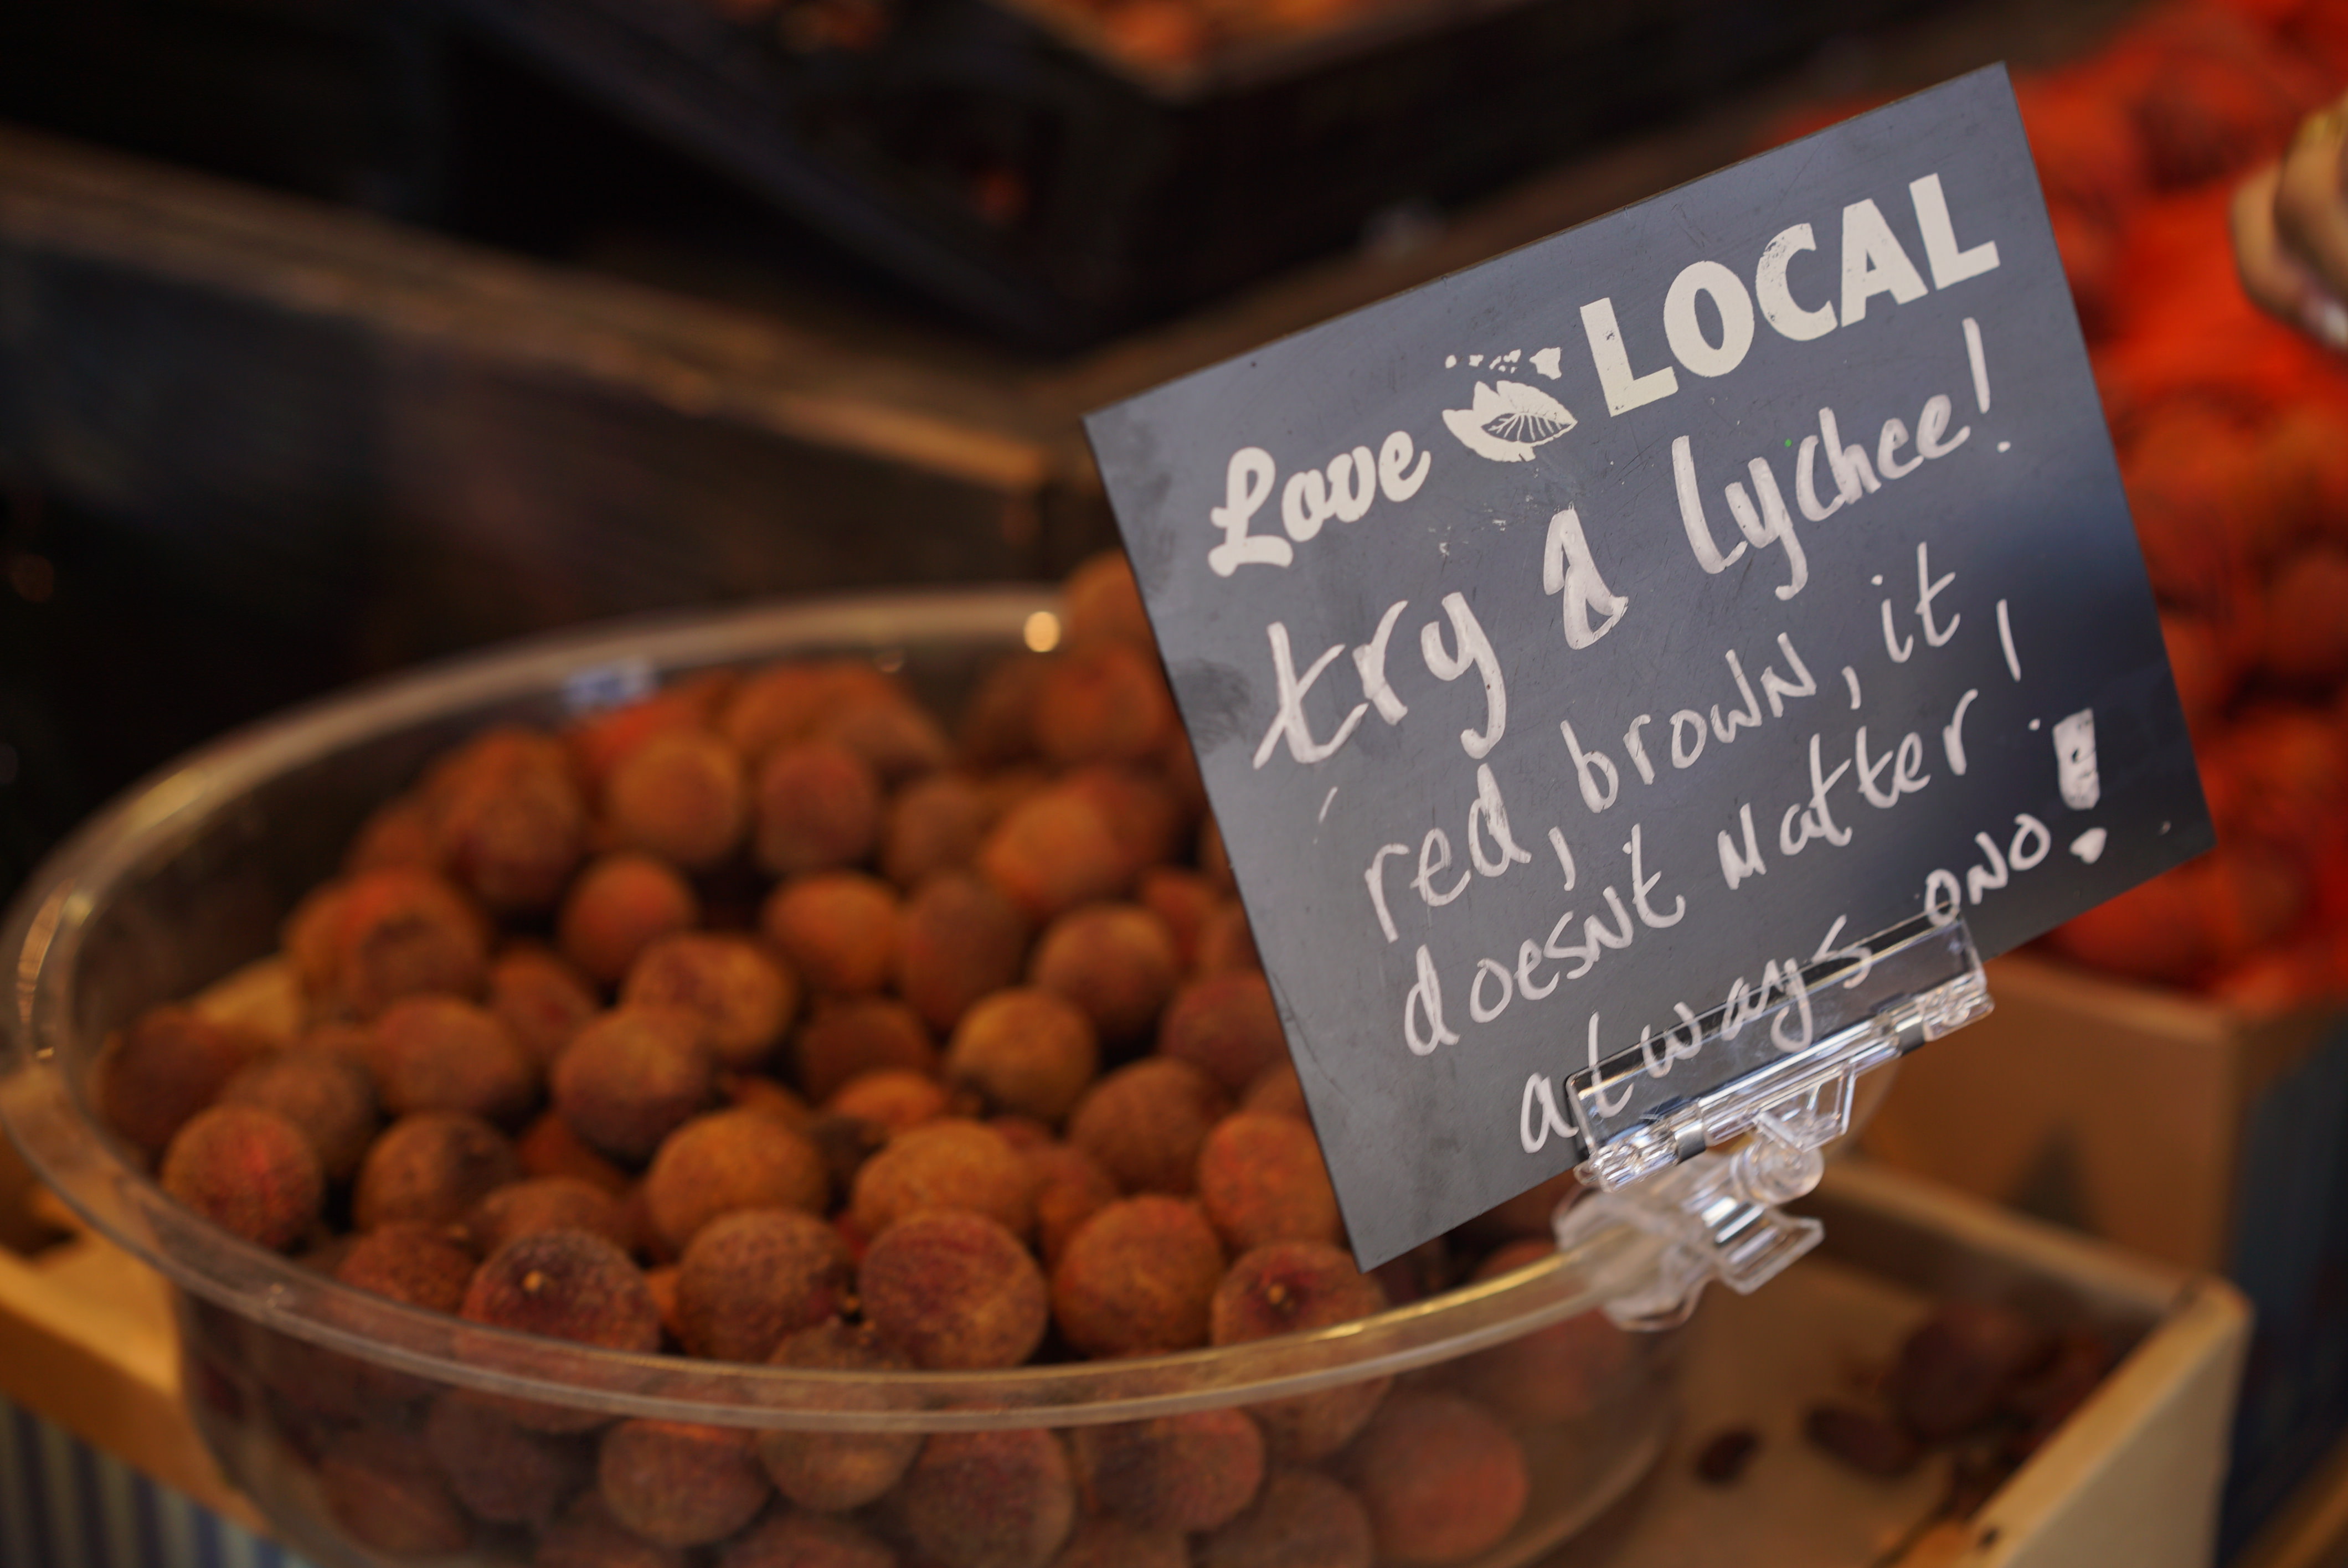 Love LOCAL
try a lychee!
red, brown, it
doesnt matter!
always ono!